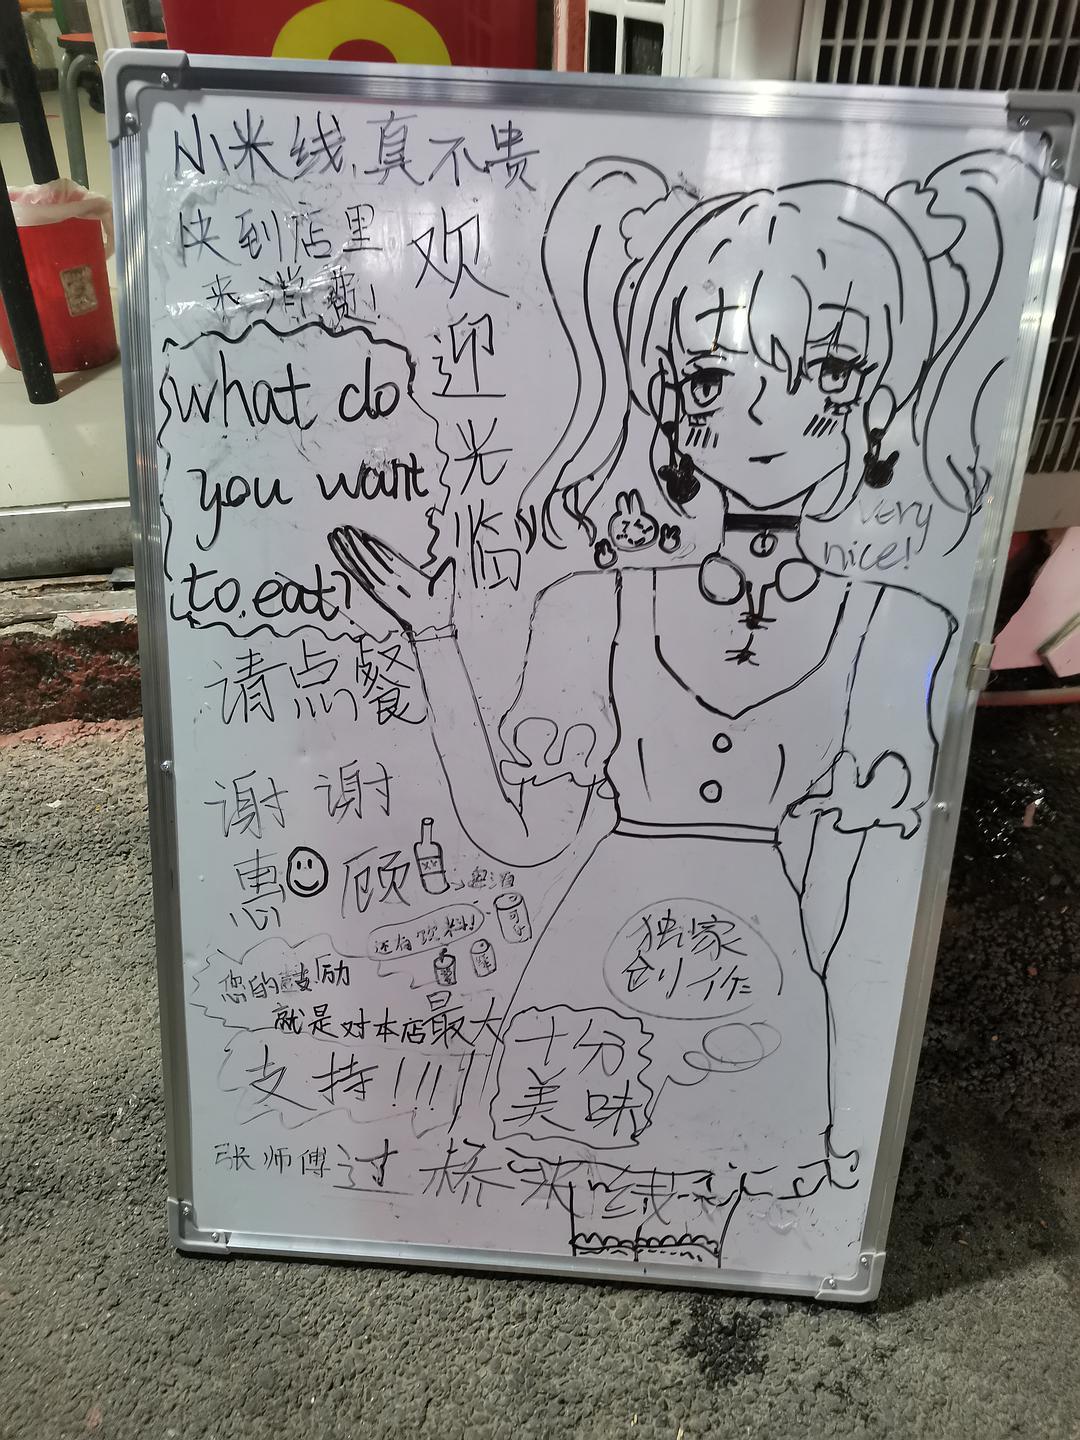 小米线,真不贵
快到店里
来消费!
欢迎光临
what do
you want
to eat?
very
nice!
请点餐
谢谢
惠顾
啤酒
还有饮料!
您的鼓励
就是对本店最大
支持!!!!
独家
创作
十分
美味
张师傅过桥米线